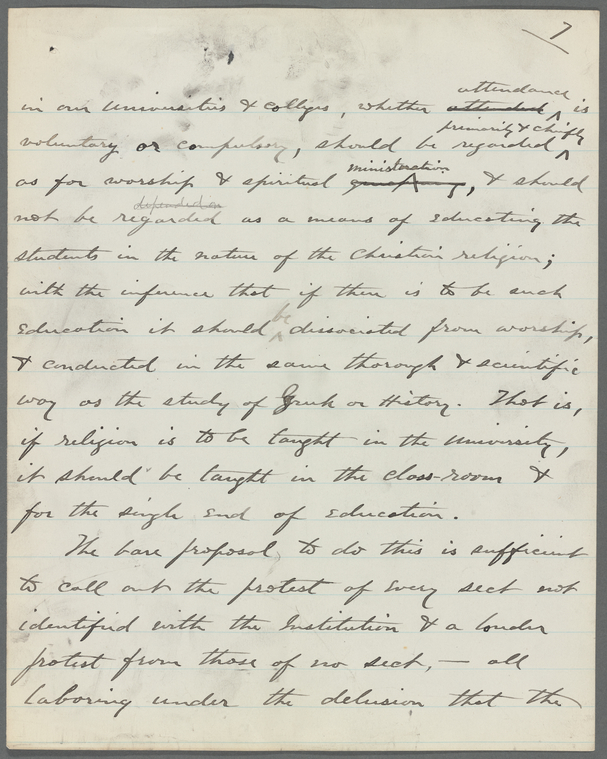 7
attendance
in our Universities & colleges, whether attended ^ is
primarily & chiefly
voluntary or compulsory, should be regarded ^
ministration
as for worship & spiritual , & should
depended on
not be regarded as a means of educating the
students in the nature of the Christian religion;
with the inference that if there is to be such
be
education it should ^ dissociated from worship,
& conducted in the same thorough & scientific
way as the study of Greek or History. That is,
if religion is to be taught in the University,
it should be taught in the class-room &
for the single end of education.
The bare proposal to do this is sufficient
to call out the protest of every sect not
identified with the Institution & a louder
protest from those of no sect, — all
laboring under the delusion that the